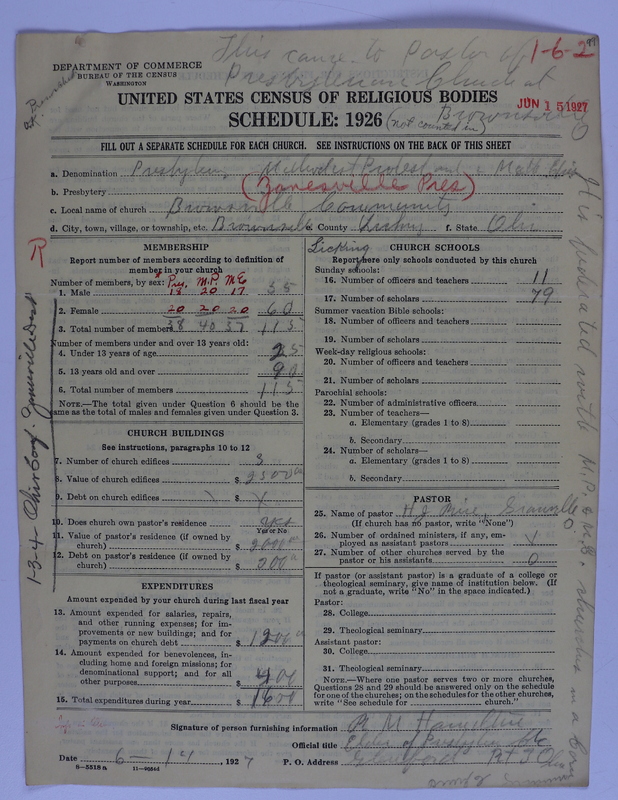 This came to Pastor of 1-6-27
DEPARTMENT OF COMMERCE
BUREAU OF THE CENSUS
WASHINGTON
Presbyterian Church at
UNITED STATES CENSUS OF RELIGIOUS BODIES
JUN 15 1927
SCHEDULE: 1926 (not counted in) Brownsville
FILL OUT A SEPARATE SCHEDULE FOR EACH CHURCH. SEE INSTRUCTIONS ON THE BACK OF THIS SHEET
a. Denomination Presbyterian Methodist Protestant
b. Presbytery (Zanesville Pres)
c. Local name of church Brownsville Community
d. City, town, village, or township, etc. Brownsville e. County Licking f. State Ohio
Licking
MEMBERSHIP
Report number of members according to definition of member in your church
Number of members, by sex: Pres. M.P. M.E
1. Male 18 20 17 55
2. Female 20 20 20 60
3. Total number of members 38 40 37 115
Number of members under and over 13 years old:
4. Under 13 years of age 25
5. 13 years old and over 90
6. Total number of members 115
NOTE.—The total given under Question 6 should be the same as the total of males and females given under Question 3.
CHURCH BUILDINGS
See instructions, paragraphs 10 to 12
7. Number of church edifices 3
8. Value of church edifices $ 2500
9. Debt on church edifices $
10. Does church own pastor's residence yes
Yes or No
11. Value of pastor's residence (if owned by church) $ 2000
12. Debt on pastor's residence (if owned by church) $ 200
EXPENDITURES
Amount expended by your church during last fiscal year
13. Amount expended for salaries, repairs, and other running expenses; for improvements or new buildings; and for payments on church debt $ 1200
14. Amount expended for benevolences, including home and foreign missions; for denominational support; and for all other purposes $ 400
15. Total expenditures during year $ 1600
CHURCH SCHOOLS
Report here only schools conducted by this church
Sunday schools:
16. Number of officers and teachers 11
17. Number of scholars 79
Summer vacation Bible schools:
18. Number of officers and teachers
19. Number of scholars
Week-day religious schools:
20. Number of officers and teachers
21. Number of scholars
Parochial schools:
22. Number of administrative officers
23. Number of teachers—
a. Elementary (grades 1 to 8)
b. Secondary
24. Number of scholars—
a. Elementary (grades 1 to 8)
b. Secondary
PASTOR
25. Name of pastor H. J. Granville O
(If church has no pastor, write "None")
26. Number of ordained ministers, if any, employed as assistant pastors
27. Number of other churches served by the pastor or his assistants 0
If pastor (or assistant pastor) is a graduate of a college or theological seminary, give name of institution below. (If not a graduate, write "No" in the space indicated.)
Pastor:
28. College
29. Theological seminary
Assistant pastor:
30. College
31. Theological seminary
NOTE.—Where one pastor serves two or more churches, Questions 28 and 29 should be answered only on the schedule for one of the churches; on the schedules for the other churches, write "See schedule for church."
Signature of person furnishing information R M Hamilton
Official title Elder of Presbyterian
Date 6-14, 1927 P. O. Address Glenford Rt 3 Ohio
6-5518a 11-9054d
1-3-4 Ohio Zanesville
It is federated with M.P. & M.E. churches in a